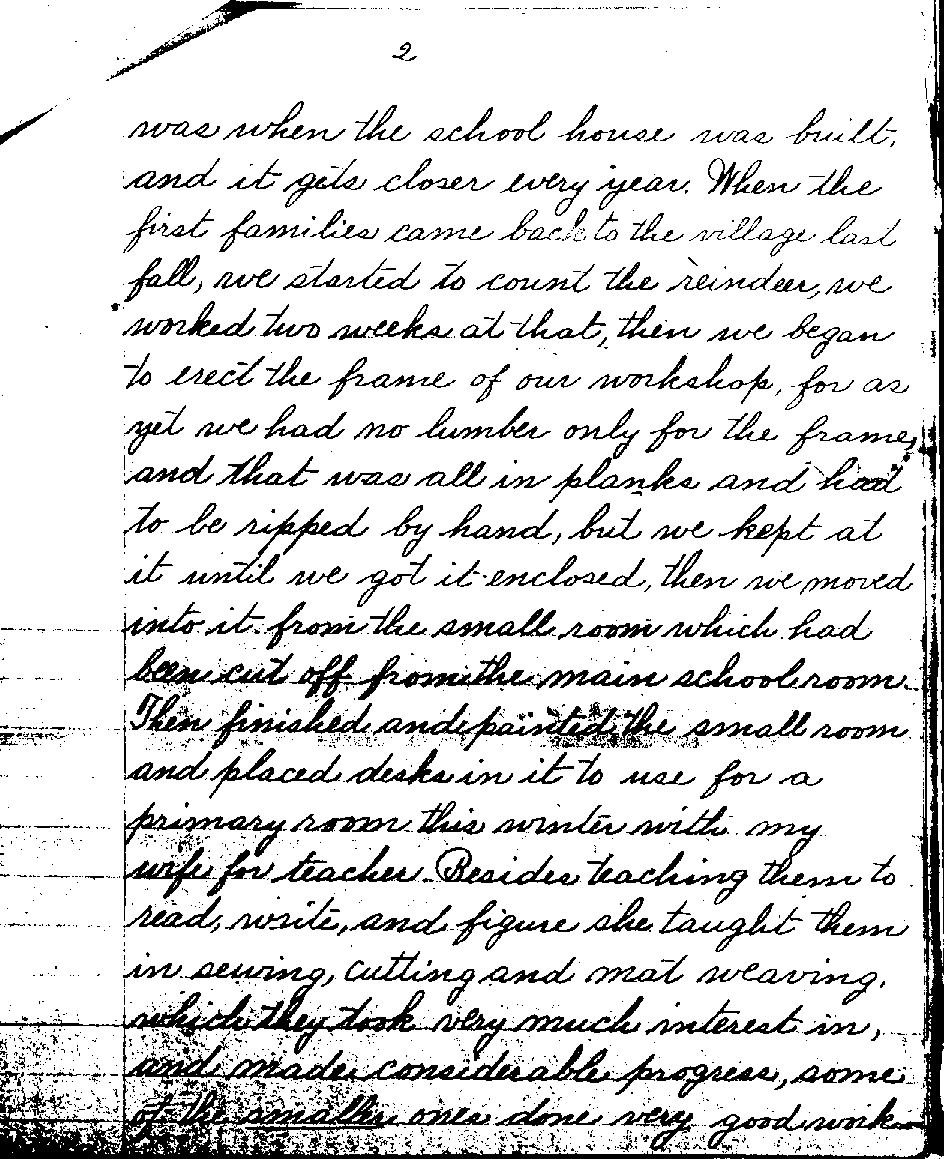 2
was when the school house was built,
and it gets closer every year. When the
first families came back to the village last
fall, we started to count the reindeer, we
worked two weeks at that, then we began
to erect the frame of our workshop, for as
yet we had no lumber only for the frame,
and that was all in planks and had
to be ripped by hand, but we kept at
it until we got it enclosed, then we moved
into it from the small room which had
been cut off from the main school room.
Then finished and painted the small room
and placed desks in it to use for a
primary room this winter with my
wife for teacher. Besides teaching them to
read, write, and figure she taught them
in sewing, cutting and mat weaving,
which they took very much interest in,
and made considerable progress, some
of the smaller ones done very good work